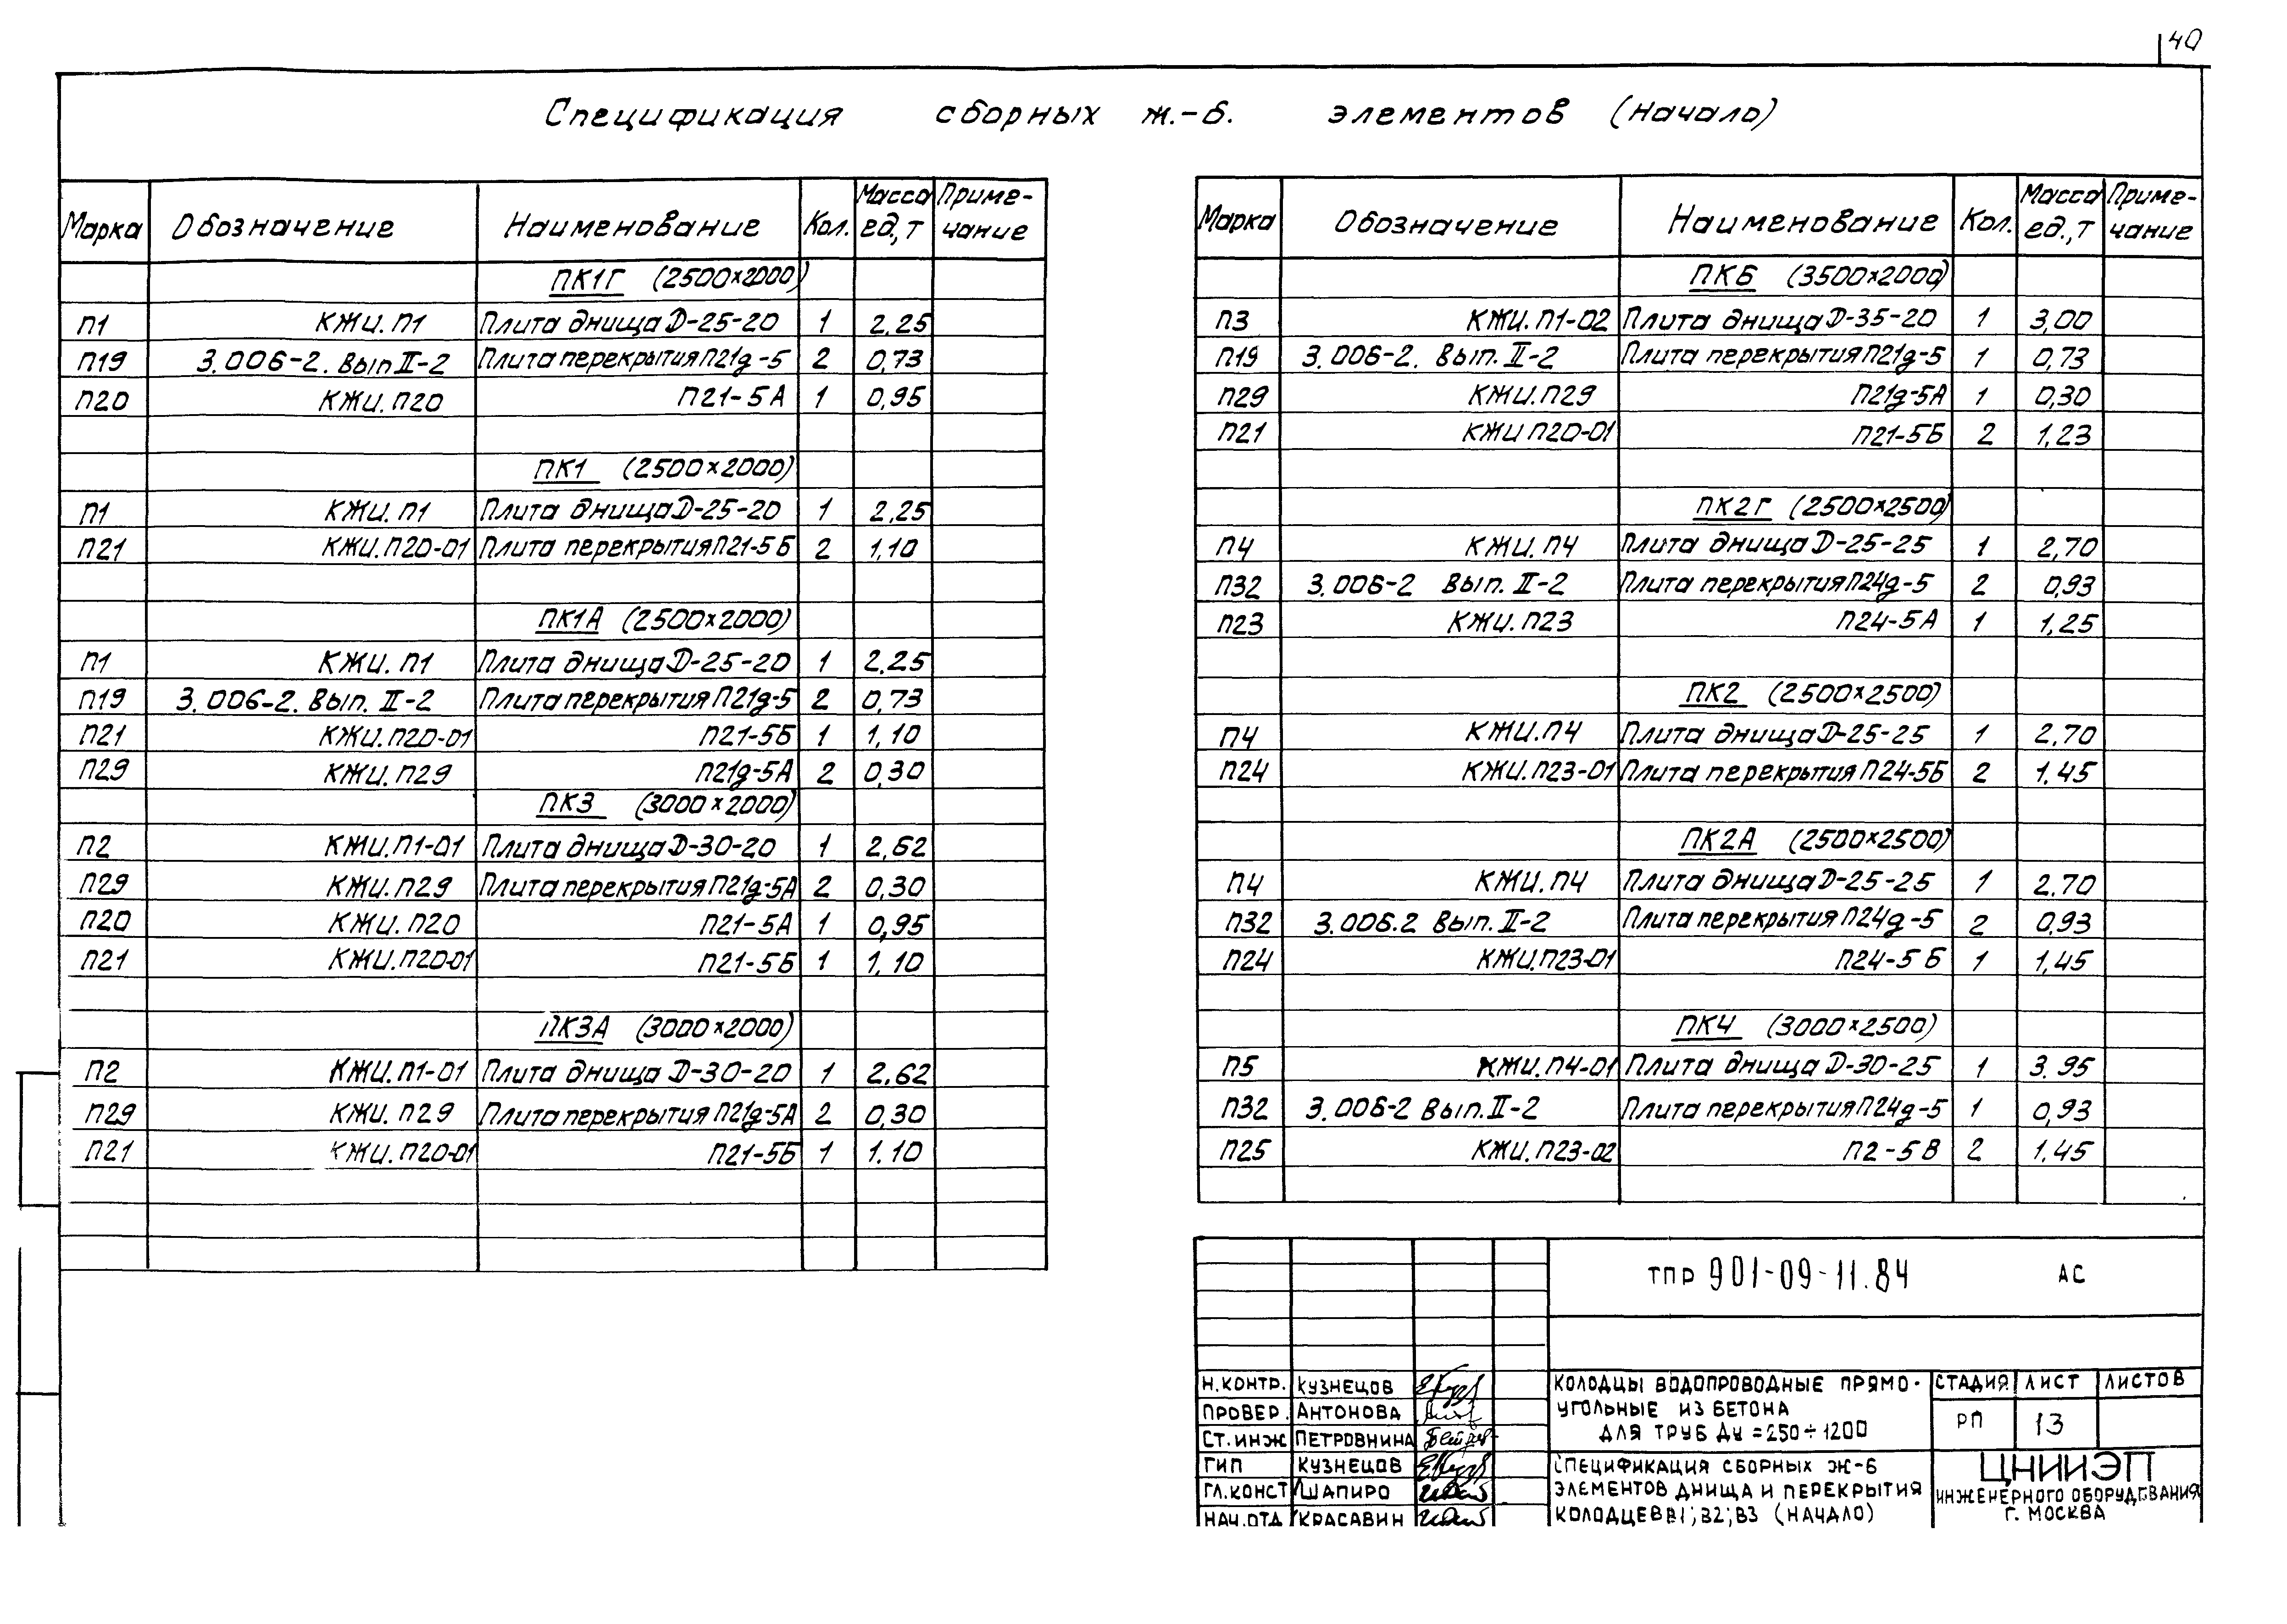 40
Спецификация сборных ж.-б. элементов (начало)
Марка Обозначение Наименование Кол. Масса ед., т Приме-чание
ПК1Г (2500×2000)
П1 КЖИ.П1 Плита днища Д-25-20 1 2.25
П19 3.006-2. Вып II-2 Плита перекрытия П21g-5 2 0,73
П20 КЖИ.П20 П21-5А 1 0,95
ПК1 (2500×2000)
П1 КЖИ.П1 Плита днища Д-25-20 1 2.25
П21 КЖИ.П20-01 Плита перекрытия П21-5Б 2 1,10
ПК1А (2500×2000)
П1 КЖИ.П1 Плита днища Д-25-20 1 2.25
П19 3.006-2. Вып. II-2 Плита перекрытия П21g-5 2 0,73
П21 КЖИ.П20-01 П21-5Б 1 1,10
П29 КЖИ.П29 П21g-5А 2 0,30
ПК3 (3000×2000)
П2 КЖИ.П1-01 Плита днища Д-30-20 1 2,62
П29 КЖИ.П29 Плита перекрытия П21g-5А 2 0,30
П20 КЖИ.П20 П21-5А 1 0,95
П21 КЖИ.П20-01 П21-5Б 1 1,10
ПК3А (3000×2000)
П2 КЖИ.П1-01 Плита днища Д-30-20 1 2,62
П29 КЖИ.П29 Плита перекрытия П21g-5А 2 0,30
П21 КЖИ.П20-01 П21-5Б 1 1.10
Марка Обозначение Наименование Кол. Масса ед., т Приме-чание
ПКБ (3500×2000)
П3 КЖИ.П1-02 Плита днища Д-35-20 1 3,00
П19 3.006-2. Вып. II-2 Плита перекрытия П21g-5 1 0,73
П29 КЖИ.П29 П21g-5А 1 0,30
П21 КЖИ П20-01 П21-5Б 2 1,23
ПК2Г (2500×2500)
П4 КЖИ.П4 Плита днища Д-25-25 1 2,70
П32 3.006-2 Вып. II-2 Плита перекрытия П24g-5 2 0,93
П23 КЖИ.П23 П24-5А 1 1,25
ПК2 (2500×2500)
П4 КЖИ.П4 Плита днища Д-25-25 1 2,70
П24 КЖИ.П23-01 Плита перекрытия П24-5Б 2 1.45
ПК2А (2500×2500)
П4 КЖИ.П4 Плита днища Д-25-25 1 2.70
П32 3.006.2 Вып. II-2 Плита перекрытия П24g-5 2 0,93
П24 КЖИ.П23-01 П24-5Б 1 1,45
ПК4 (3000×2500)
П5 КЖИ.П4-01 Плита днища Д-30-25 1 3.95
П32 3.006-2 Вып. II-2 Плита перекрытия П24g-5 1 0,93
П25 КЖИ.П23-02 П2-5В 2 1.45
ТПР 901-09-11.84 АС
Н.КОНТР. КУЗНЕЦОВ
ПРОВЕР. АНТОНОВА
СТ.ИНЖ ПЕТРОВНИНА
ГИП КУЗНЕЦОВ
ГЛ.КОНСТ ШАПИРО
НАЧ.ОТД КРАСАВИН
КОЛОДЦЫ ВОДОПРОВОДНЫЕ ПРЯМО-
УГОЛЬНЫЕ ИЗ БЕТОНА
ДЛЯ ТРУБ ДУ =250÷1200
СТАДИЯ ЛИСТ ЛИСТОВ
РП 13
СПЕЦИФИКАЦИЯ СБОРНЫХ Ж-Б
ЭЛЕМЕНТОВ ДНИЩА И ПЕРЕКРЫТИЯ
КОЛОДЦЕВ В1; В2; В3 (НАЧАЛО)
ЦНИИЭП
ИНЖЕНЕРНОГО ОБОРУДОВАНИЯ
Г. МОСКВА